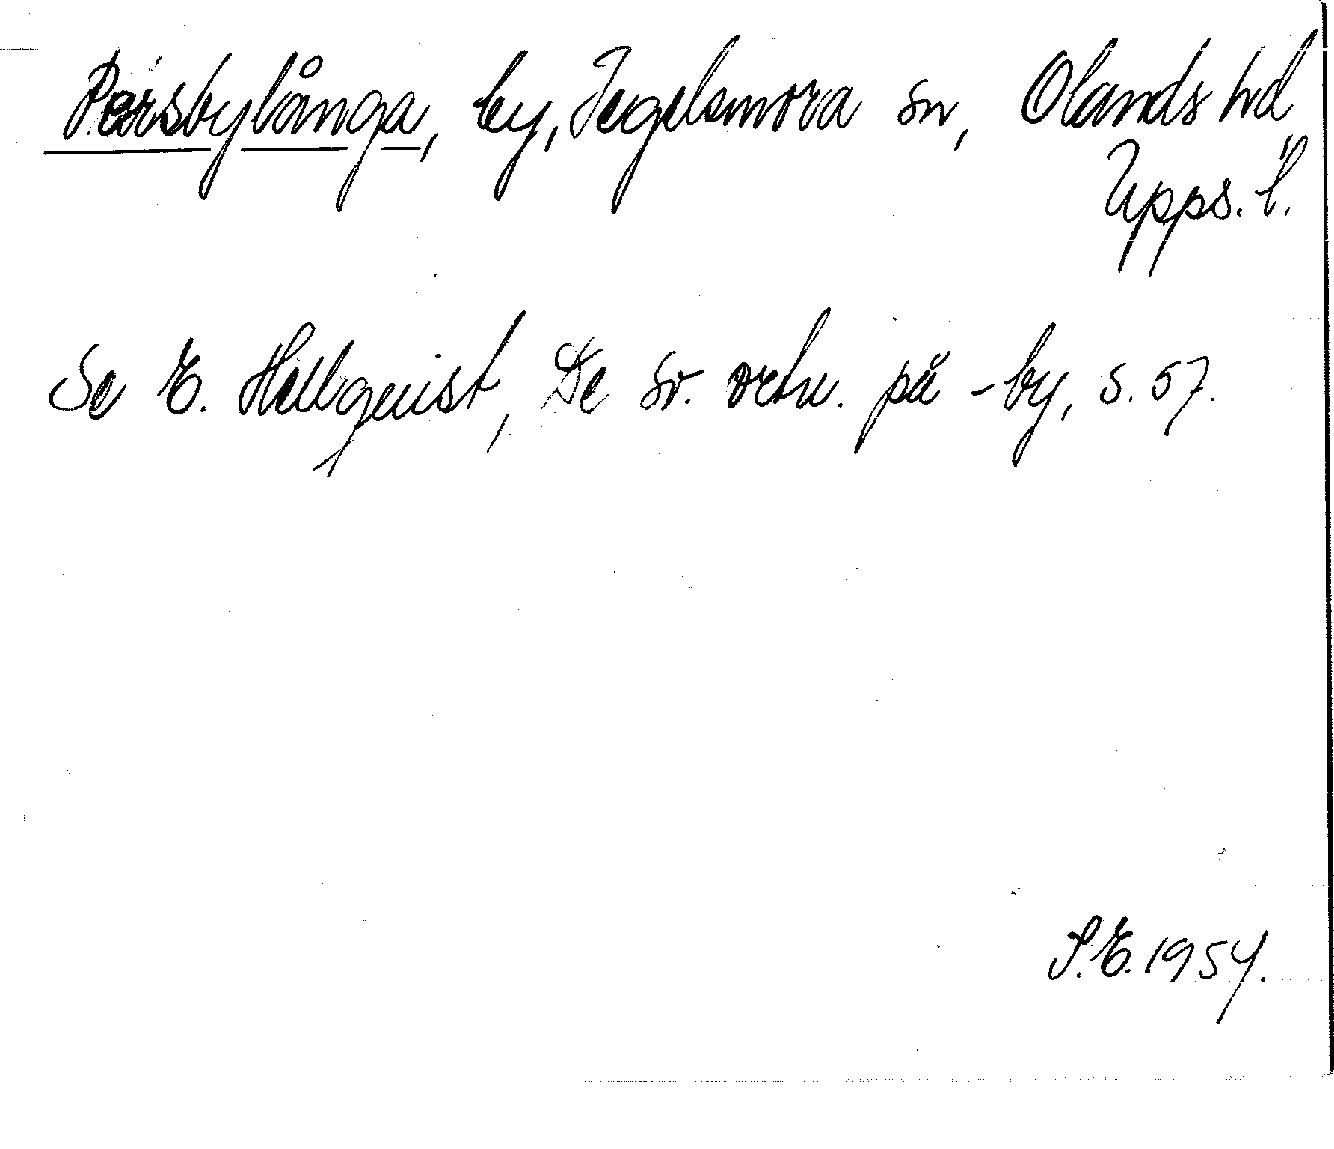 Persbylånga, by, Tegelsmora sn, Olands hd,
Upps. l.
Se E. Hellquist, De sv. ortn. på -by, s. 57.
S.E. 1954.